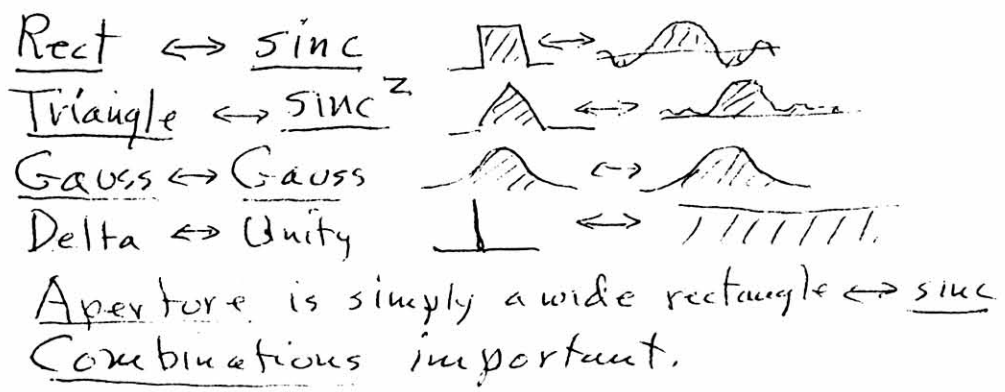 Rect ↔ sinc
Triangle ↔ sinc²
Gauss ↔ Gauss
Delta ↔ Unity
Aperture is simply a wide rectangle ↔ sinc
Combinations important.